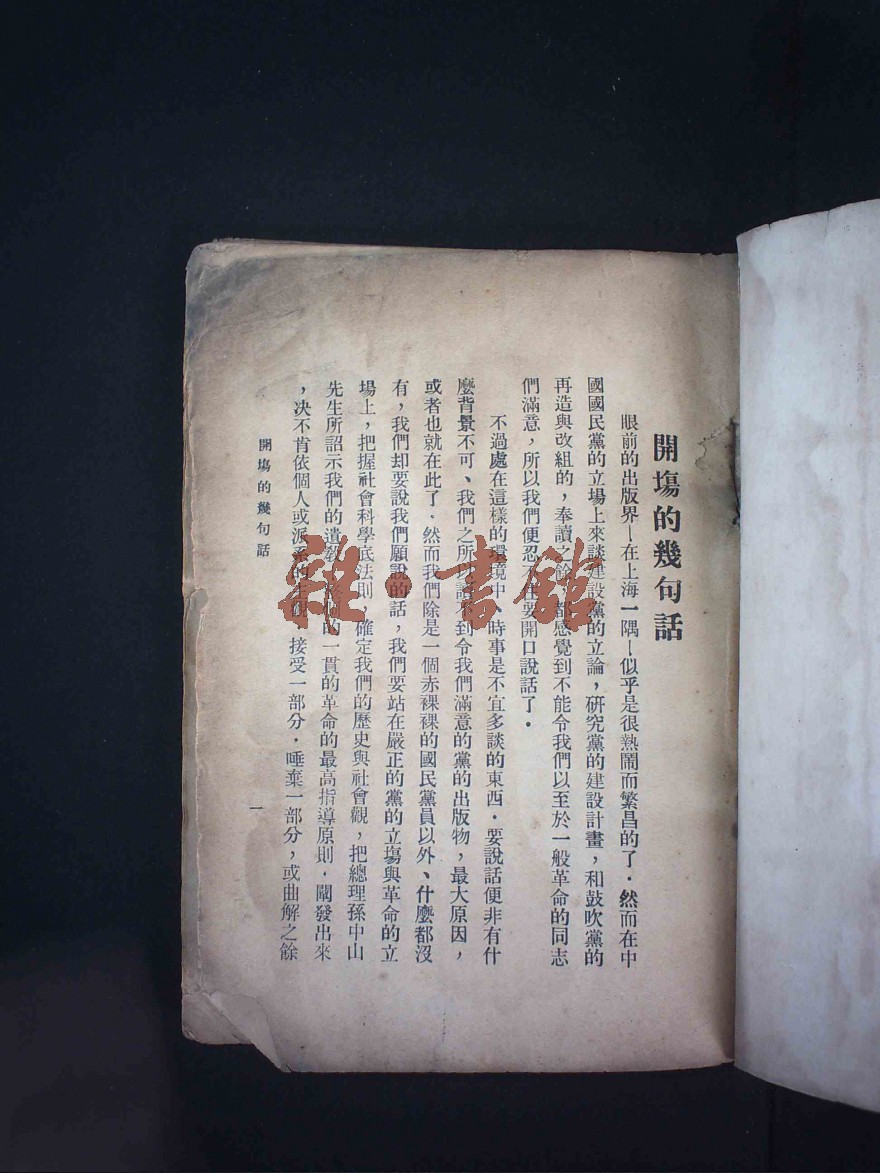 開塲的幾句話
眼前的出版界—在上海一隅—似乎是很熱鬧而繁昌的了．然而在中
國國民黨的立場上來談建設黨的立論，研究黨的建設計畫，和鼓吹黨的
再造與改組的，奉讀之餘，都感覺到不能令我們以至於一般革命的同志
們滿意，所以我們便忍不住要開口說話了．
不過處在這樣的環境中、時事是不宜多談的東西．要說話便非有什
麼背景不可、我們之所以讀不到令我們滿意的黨的出版物，最大原因，
或者也就在此了．然而我們除是一個赤裸裸的國民黨員以外、什麼都沒
有，我們却要說我們願說的話，我們要站在嚴正的黨的立塲與革命的立
場上，把握社會科學底法則，確定我們的歷史與社會觀，把總理孫中山
先生所詔示我們的遺教，的一貫的革命的最高指導原則．闡發出來
，决不肯依個人或派系的主觀，接受一部分．唾棄一部分，或曲解之餘
開塲的幾句話
一
雜·書館